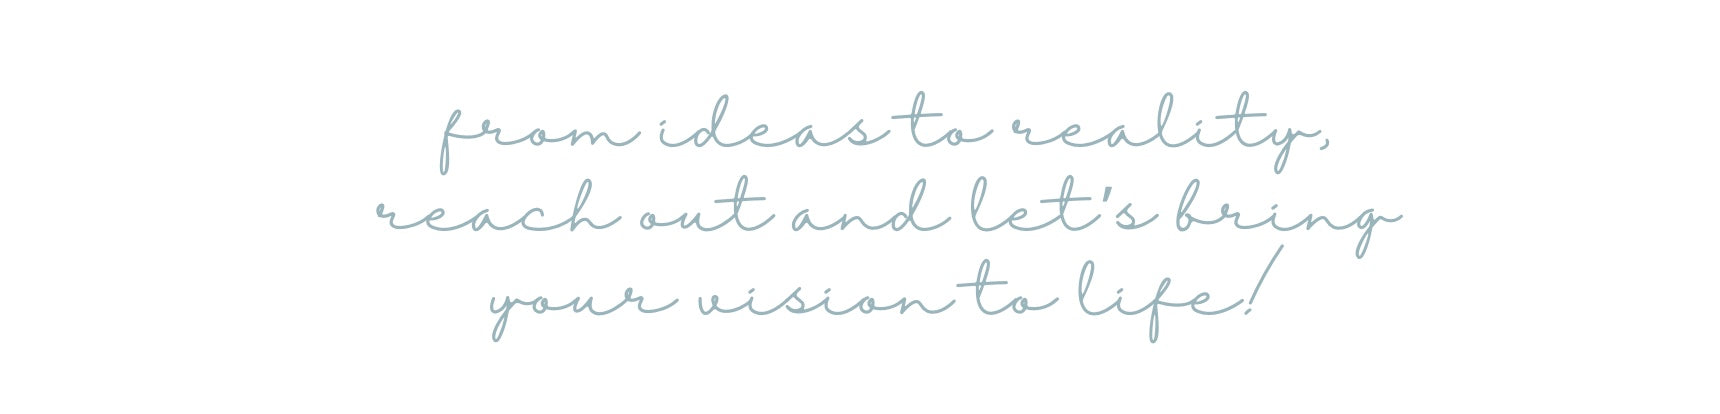 from ideas to reality,
reach out and let's bring
your vision to life!